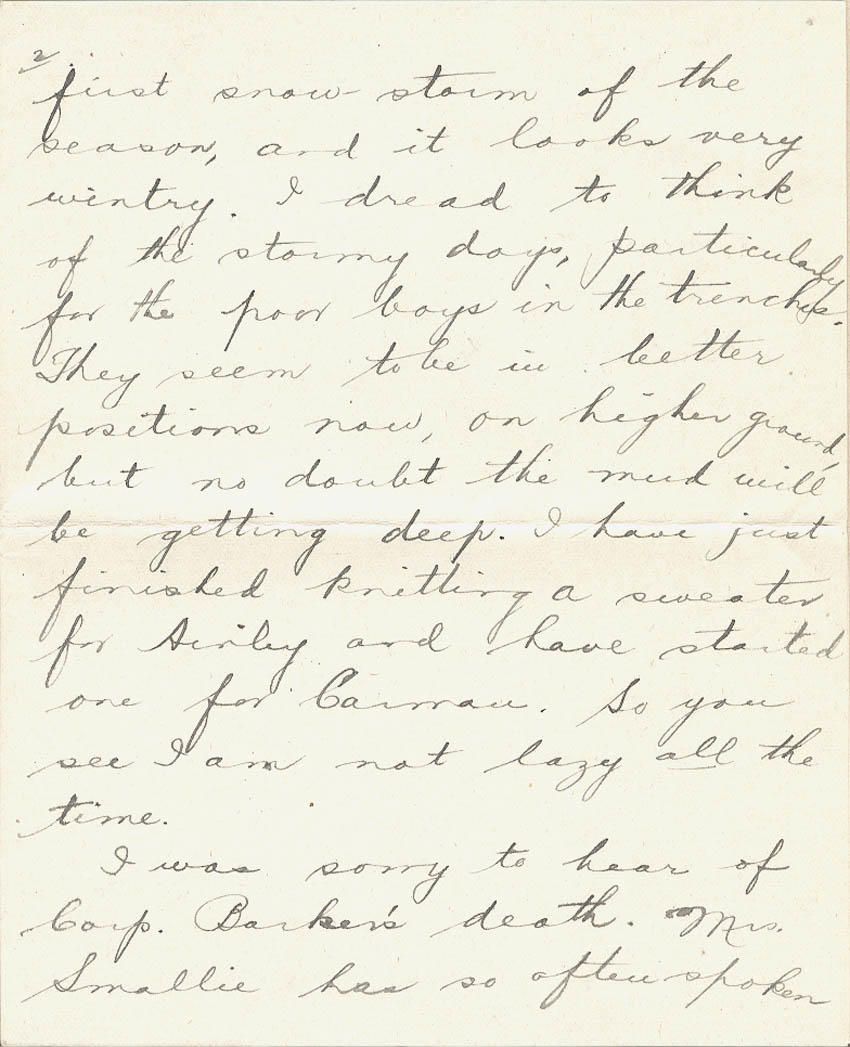 2
first snow-storm of the
season, and it looks very
wintry. I dread to think
of the stormy days, particularly
for the poor boys in the trenches.
They seem to be in better
positions now, on higher ground,
but no doubt the mud will
be getting deep. I have just
finished knitting a sweater
for and have started
one for Carman. So you
see I am not lazy all the
time.
I was sorry to hear of
Corp. Barker's death. Mrs.
Smallie has so often spoken